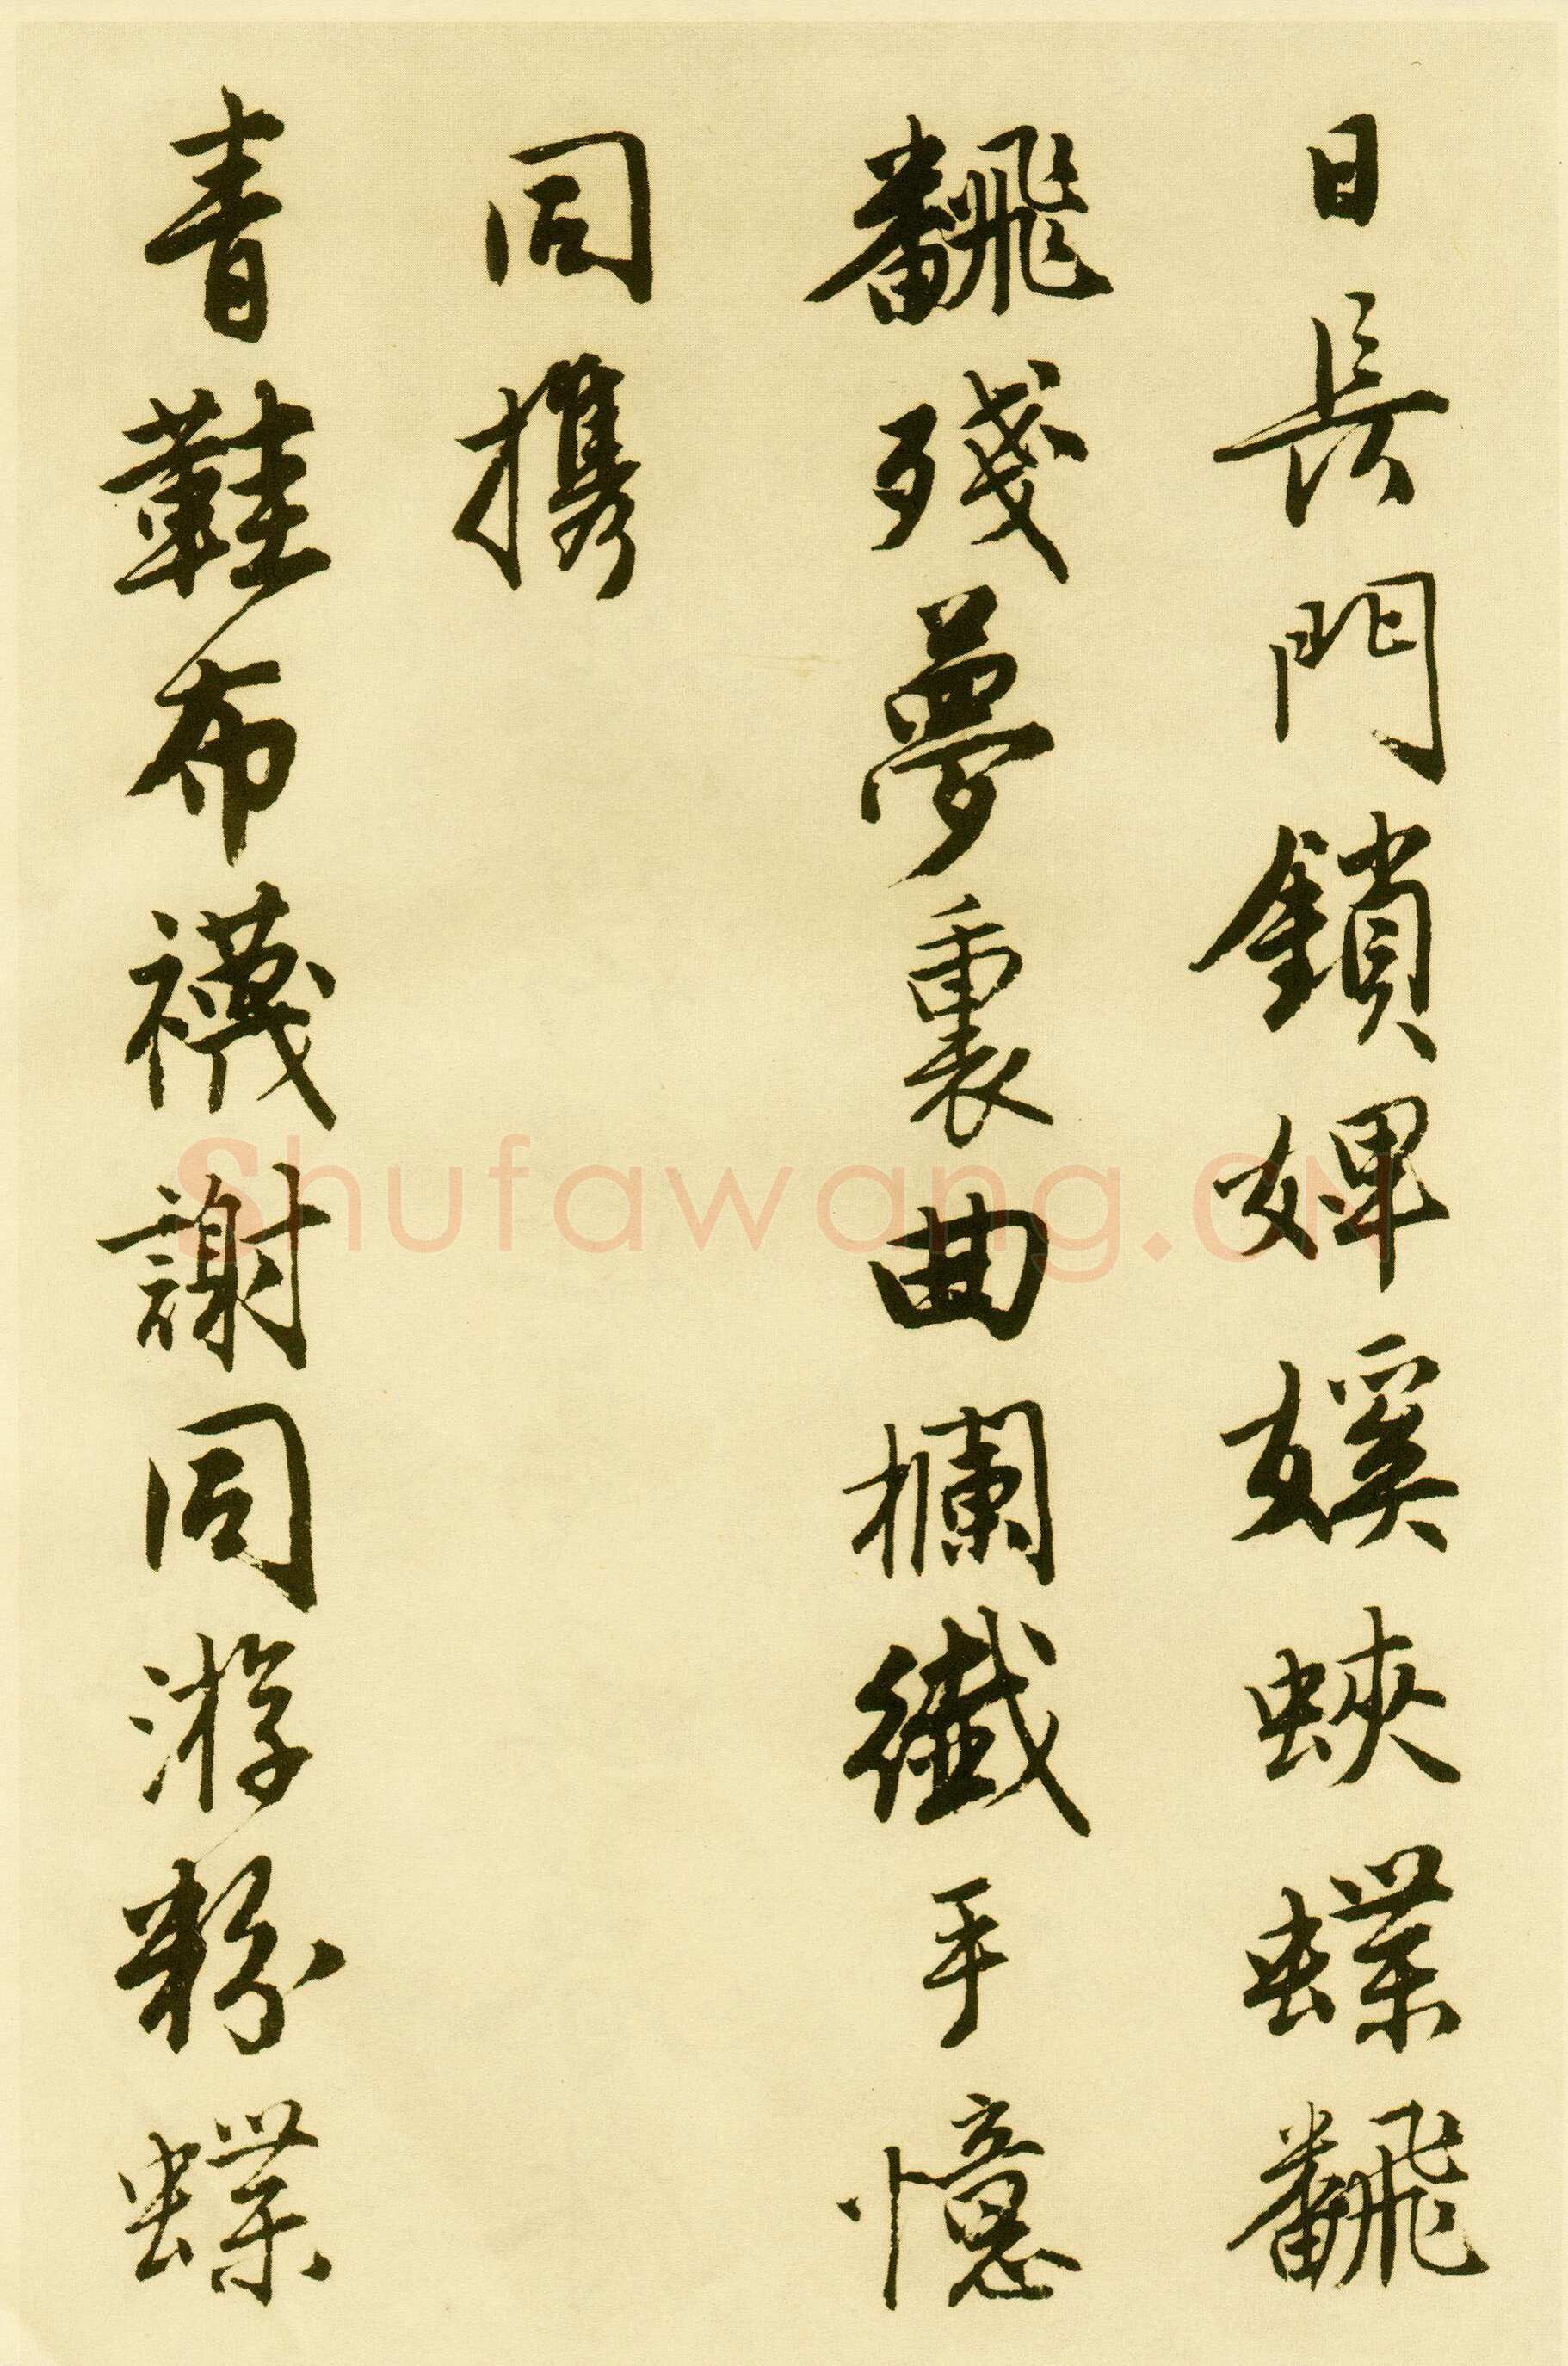 日長門鎖婢㜎蛺蝶飜
飜殘夢裏曲欄纖手憶
同携
青鞋布襪謝同游粉蝶
shufawang.CN